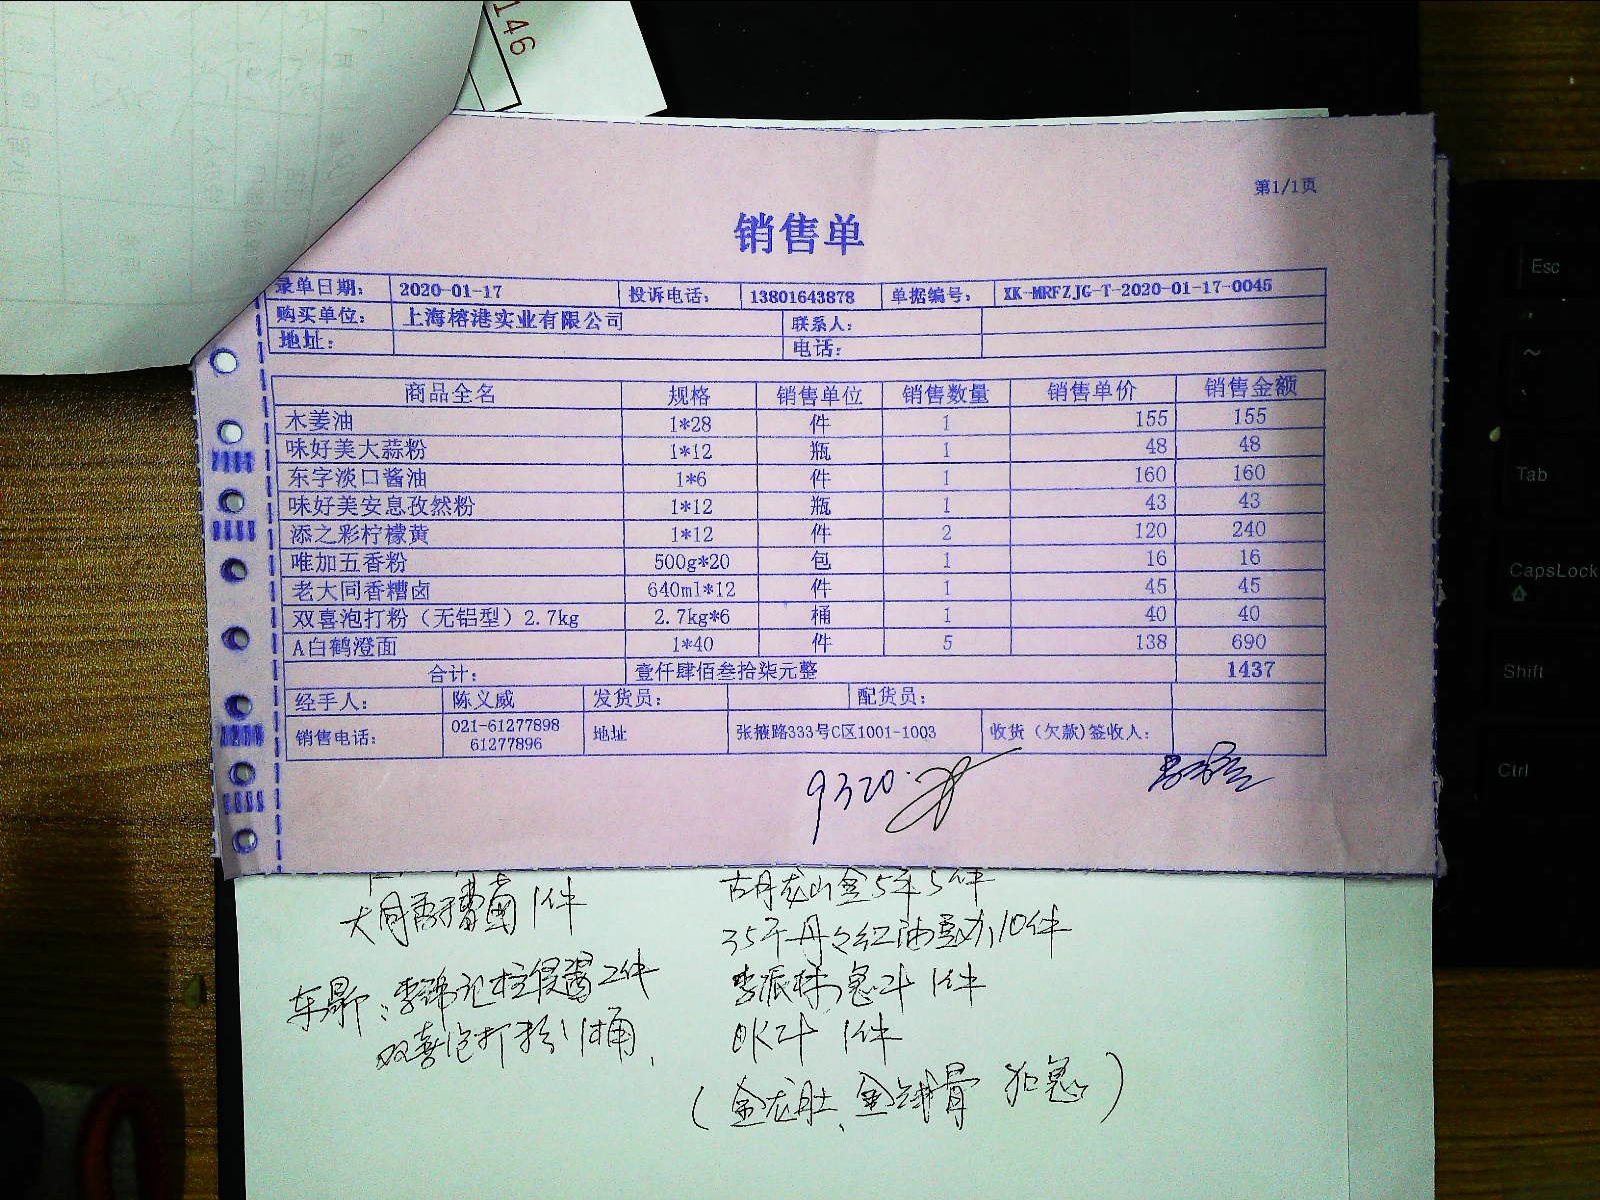 146
第1/1页
销售单
录单日期： 2020-01-17 投诉电话： 13801643878 单据编号： XK-MRFZJG-T-2020-01-17-0045
购买单位： 上海榕港实业有限公司 联系人：
地址： 电话：
商品全名 规格 销售单位 销售数量 销售单价 销售金额
木姜油 1*28 件 1 155 155
味好美大蒜粉 1*12 瓶 1 48 48
东字淡口酱油 1*6 件 1 160 160
味好美安息孜然粉 1*12 瓶 1 43 43
添之彩柠檬黄 1*12 件 2 120 240
唯加五香粉 500g*20 包 1 16 16
老大同香糟卤 640ml*12 件 1 45 45
双喜泡打粉（无铝型）2.7kg 2.7kg*6 桶 1 40 40
A白鹤澄面 1*40 件 5 138 690
合计： 壹仟肆佰叁拾柒元整 1437
经手人： 陈义威 发货员： 配货员：
销售电话： 021-61277898 61277896 地址 张掖路333号C区1001-1003 收货（欠款)签收人：
9320.
大同香糟卤 1件
李锦记柱侯酱2件
双喜泡打粉1桶
10件
1件
1件
Esc
~
Tab
CapsLock
Shift
Ctrl